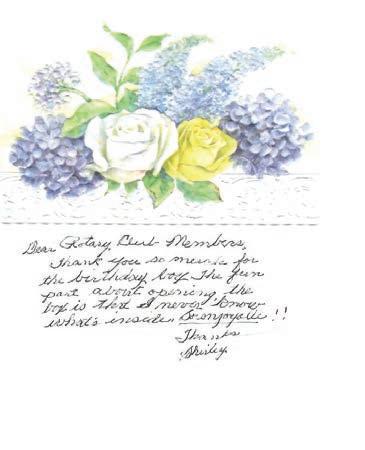 Dear Rotary Club Members,
Thank you so much for
the birthday box. The fun
part about opening the
box is that I never know
what's inside. So enjoyable!!
Thanks
Shirley